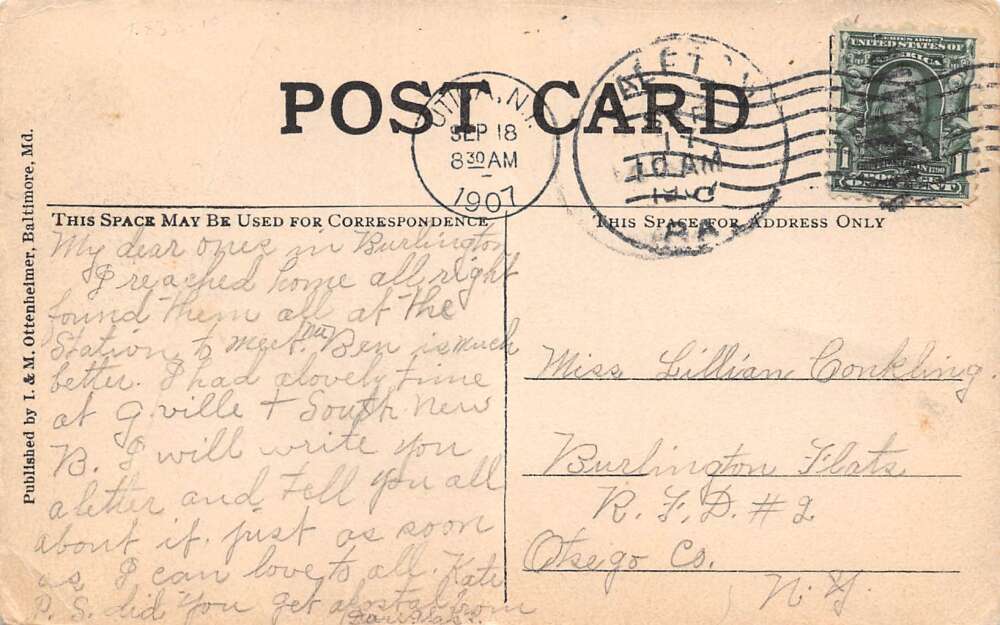 POST CARD
UTICA, N.Y.
SEP 18
8 30 AM
1907
17
10 AM
1907
PA
UNITED STATES OF
AMERICA
1
1
ONE CENT
THIS SPACE MAY BE USED FOR CORRESPONDENCE
THIS SPACE FOR ADDRESS ONLY
Published by I. & M. Ottenheimer, Baltimore, Md.
My dear ones in Burlington
I reached home all right
found them all at the
Station to meet me. Ben is much
better. I had a lovely time
at G.ville + South New
B. I will write you
a letter and tell you all
about it. just as soon
as I can love to all. Kate
P. S. did you get a postal from
Miss Lillian Conkling.
Burlington Flats
R. F. D. # 2
Otsego Co.
N. Y.